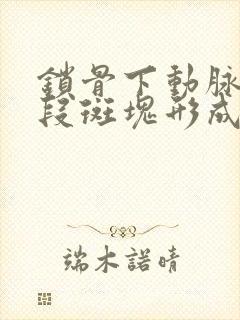 鎖骨下動脉
段斑塊形成
端木諾晴